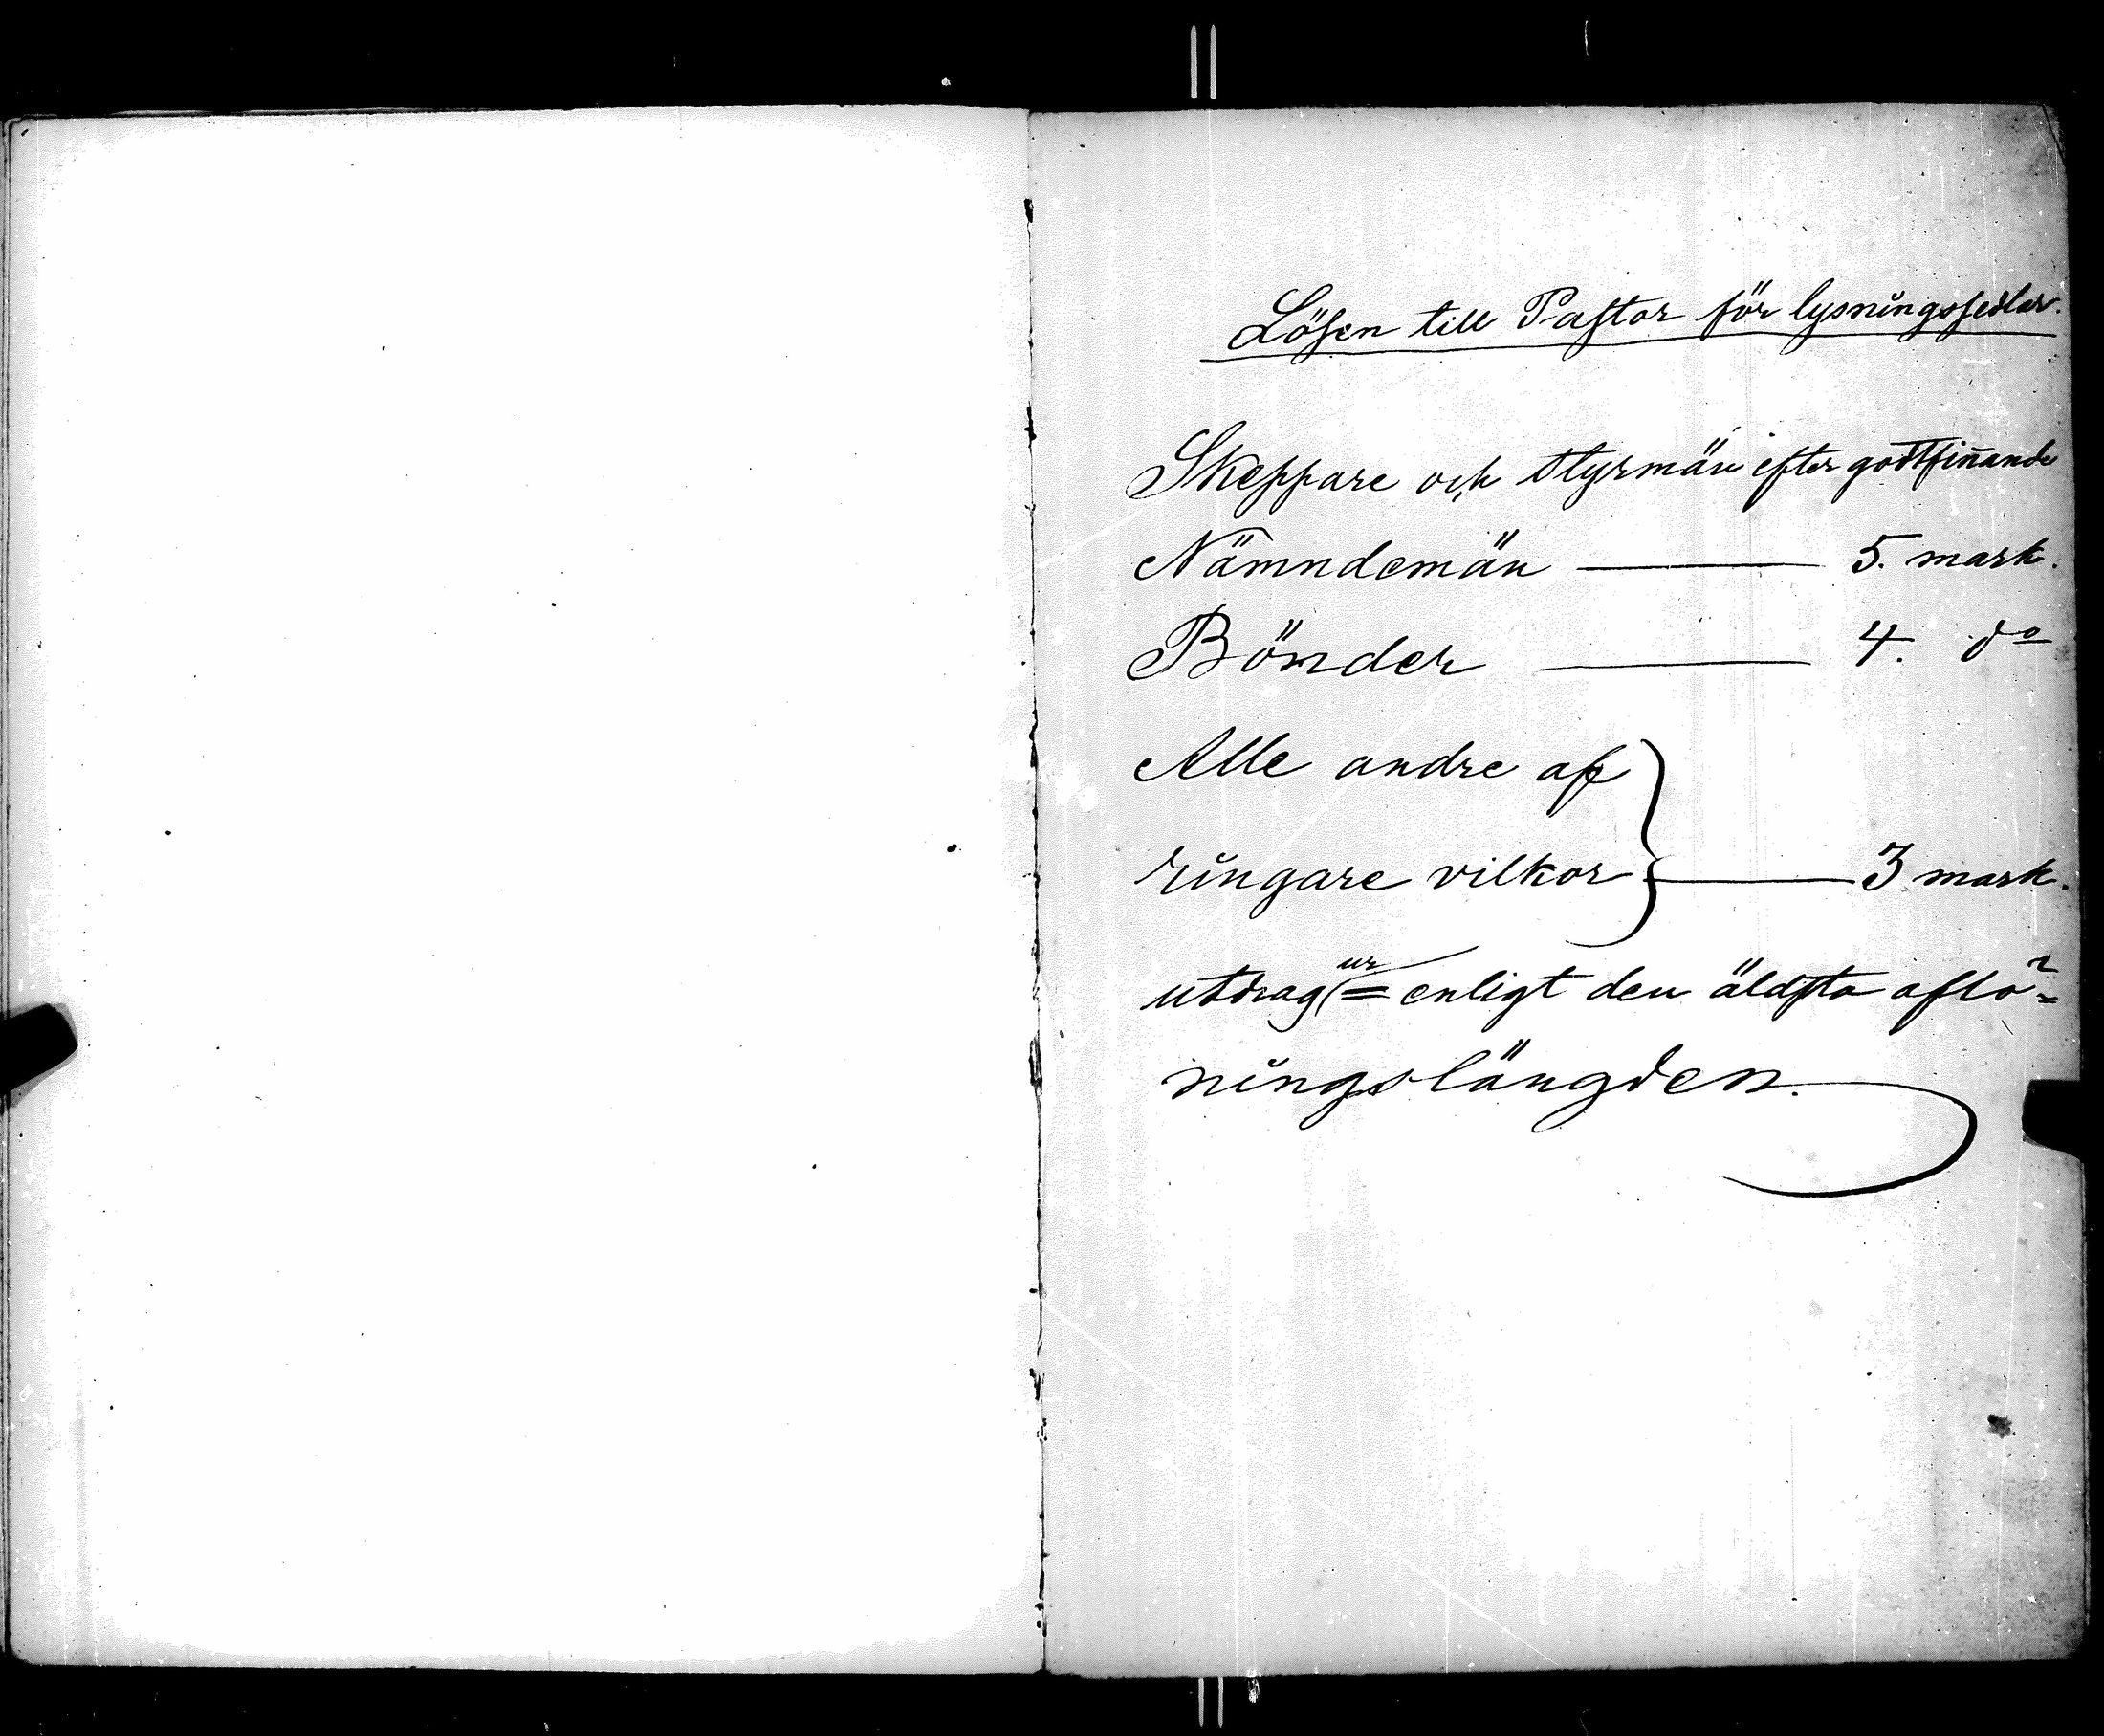 Lösen till Pastor för lysningssedlar.
Skeppare och styrmän efter godtfin̄ande
Nämndemän — 5. mark.
Bönder — 4. do
Alle andre af
ringare vilkor } — 3 mark.
ur
utdrag = enligt den äldsta aflö=
ningslängden.